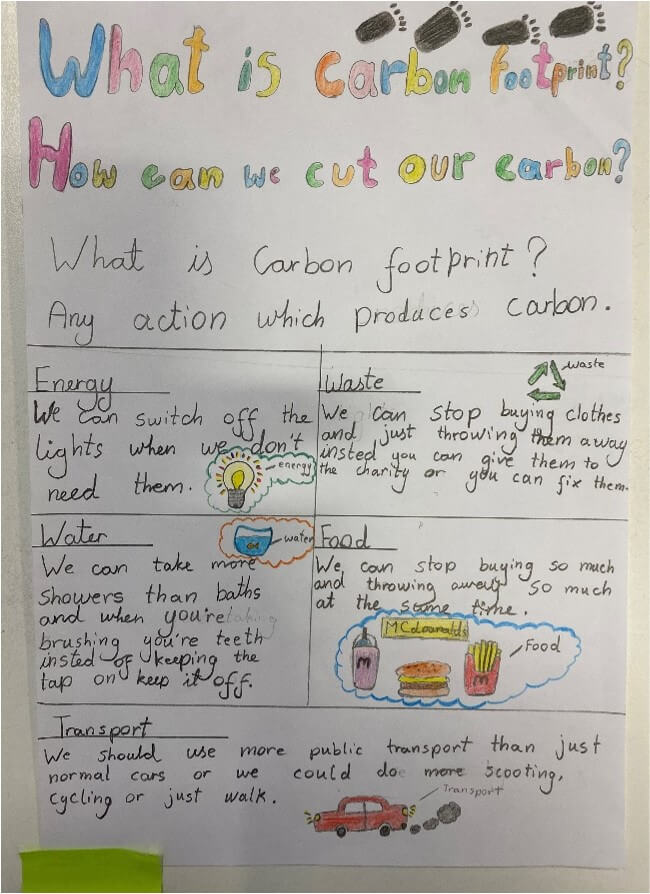 What is carbon footprint?
How can we cut our carbon?
What is Carbon footprint?
Any action which produces carbon.
Energy
We can switch off the
lights when we don't
need them.
energy
Waste
waste
We can stop buying clothes
and just throwing them away
insted you can give them to
the charity or you can fix them.
Water
water
We can take more
showers than baths
and when you're
brushing you're teeth
insted of keeping the
tap on keep it off.
Food
We can stop buying so much
and throwing away so much
at the same time.
MCdounalds
M
M
Food
Transport
We should use more public transport than just
normal cars or we could do more scooting,
cycling or just walk.
Transport